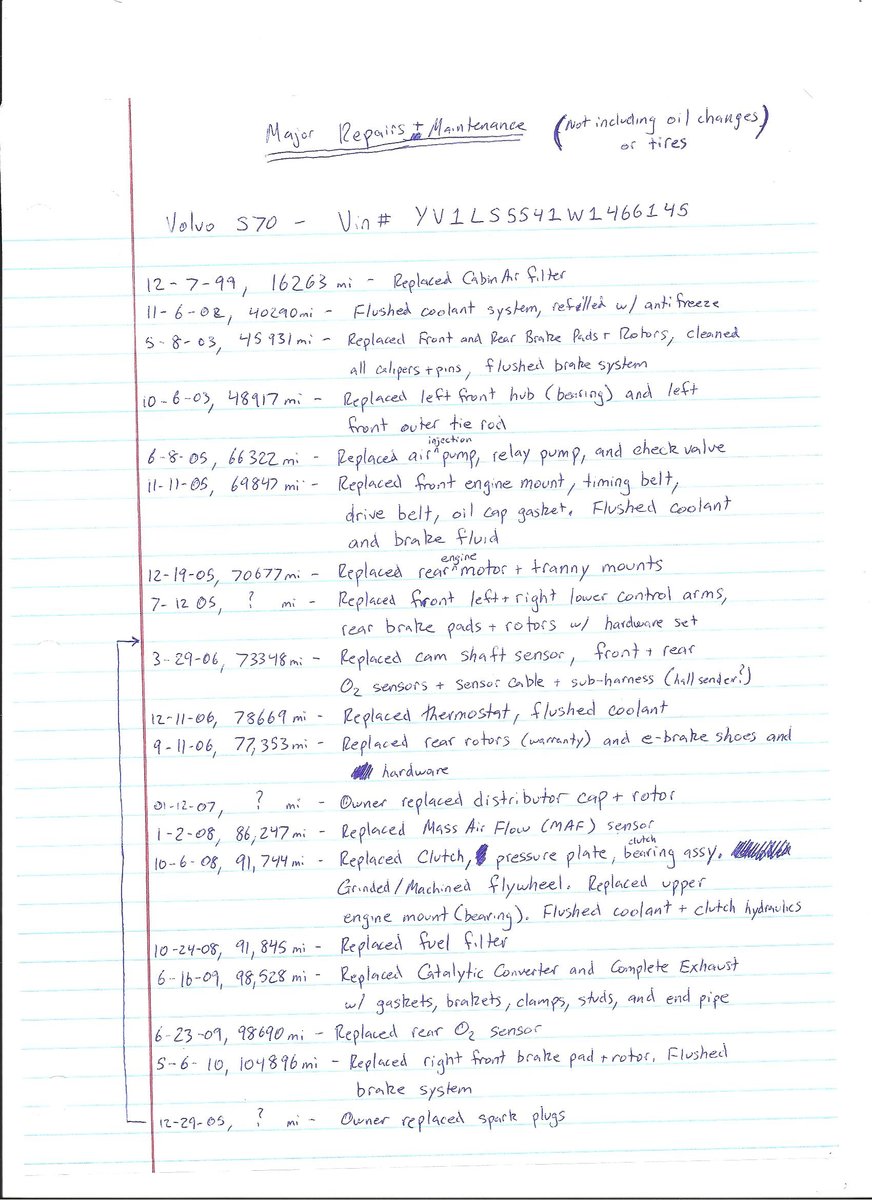 Major Repairs + Maintenance (Not including oil changes)
or tires
Volvo S70 - Vin# YV1LS5541W1466145
12-7-99, 16263 mi - Replaced Cabin Air filter
11-6-02, 40290 mi - Flushed coolant system, refilled w/ antifreeze
5-8-03, 45931 mi - Replaced Front and Rear Brake Pads + Rotors, cleaned
all calipers + pins, flushed brake system
10-6-03, 48917 mi - Replaced left front hub (bearing) and left
front outer tie rod
6-8-05, 66322 mi - Replaced air injection pump, relay pump, and check valve
11-11-05, 69847 mi - Replaced front engine mount, timing belt,
drive belt, oil cap gasket. Flushed coolant
and brake fluid
12-19-05, 70677 mi - Replaced rear engine motor + tranny mounts
7-12 05, ? mi - Replaced front left + right lower control arms,
rear brake pads + rotors w/ hardware set
3-29-06, 73348 mi - Replaced cam shaft sensor, front + rear
O2 sensors + sensor cable + sub-harness (hall sender?)
12-11-06, 78669 mi - Replaced thermostat, flushed coolant
9-11-06, 77,353 mi - Replaced rear rotors (warranty) and e-brake shoes and
hardware
01-12-07, ? mi - Owner replaced distributor cap + rotor
1-2-08, 86,247 mi - Replaced Mass Air Flow (MAF) sensor
10-6-08, 91,744 mi - Replaced Clutch, pressure plate, clutch bearing assy.
Grinded/Machined flywheel. Replaced upper
engine mount (bearing). Flushed coolant + clutch hydraulics
10-24-08, 91,845 mi - Replaced fuel filter
6-16-09, 98,528 mi - Replaced Catalytic Converter and Complete Exhaust
w/ gaskets, brakets, clamps, studs, and end pipe
6-23-09, 98690 mi - Replaced rear O2 sensor
5-6-10, 104896 mi - Replaced right front brake pad + rotor. Flushed
brake system
12-29-05, ? mi - Owner replaced spark plugs